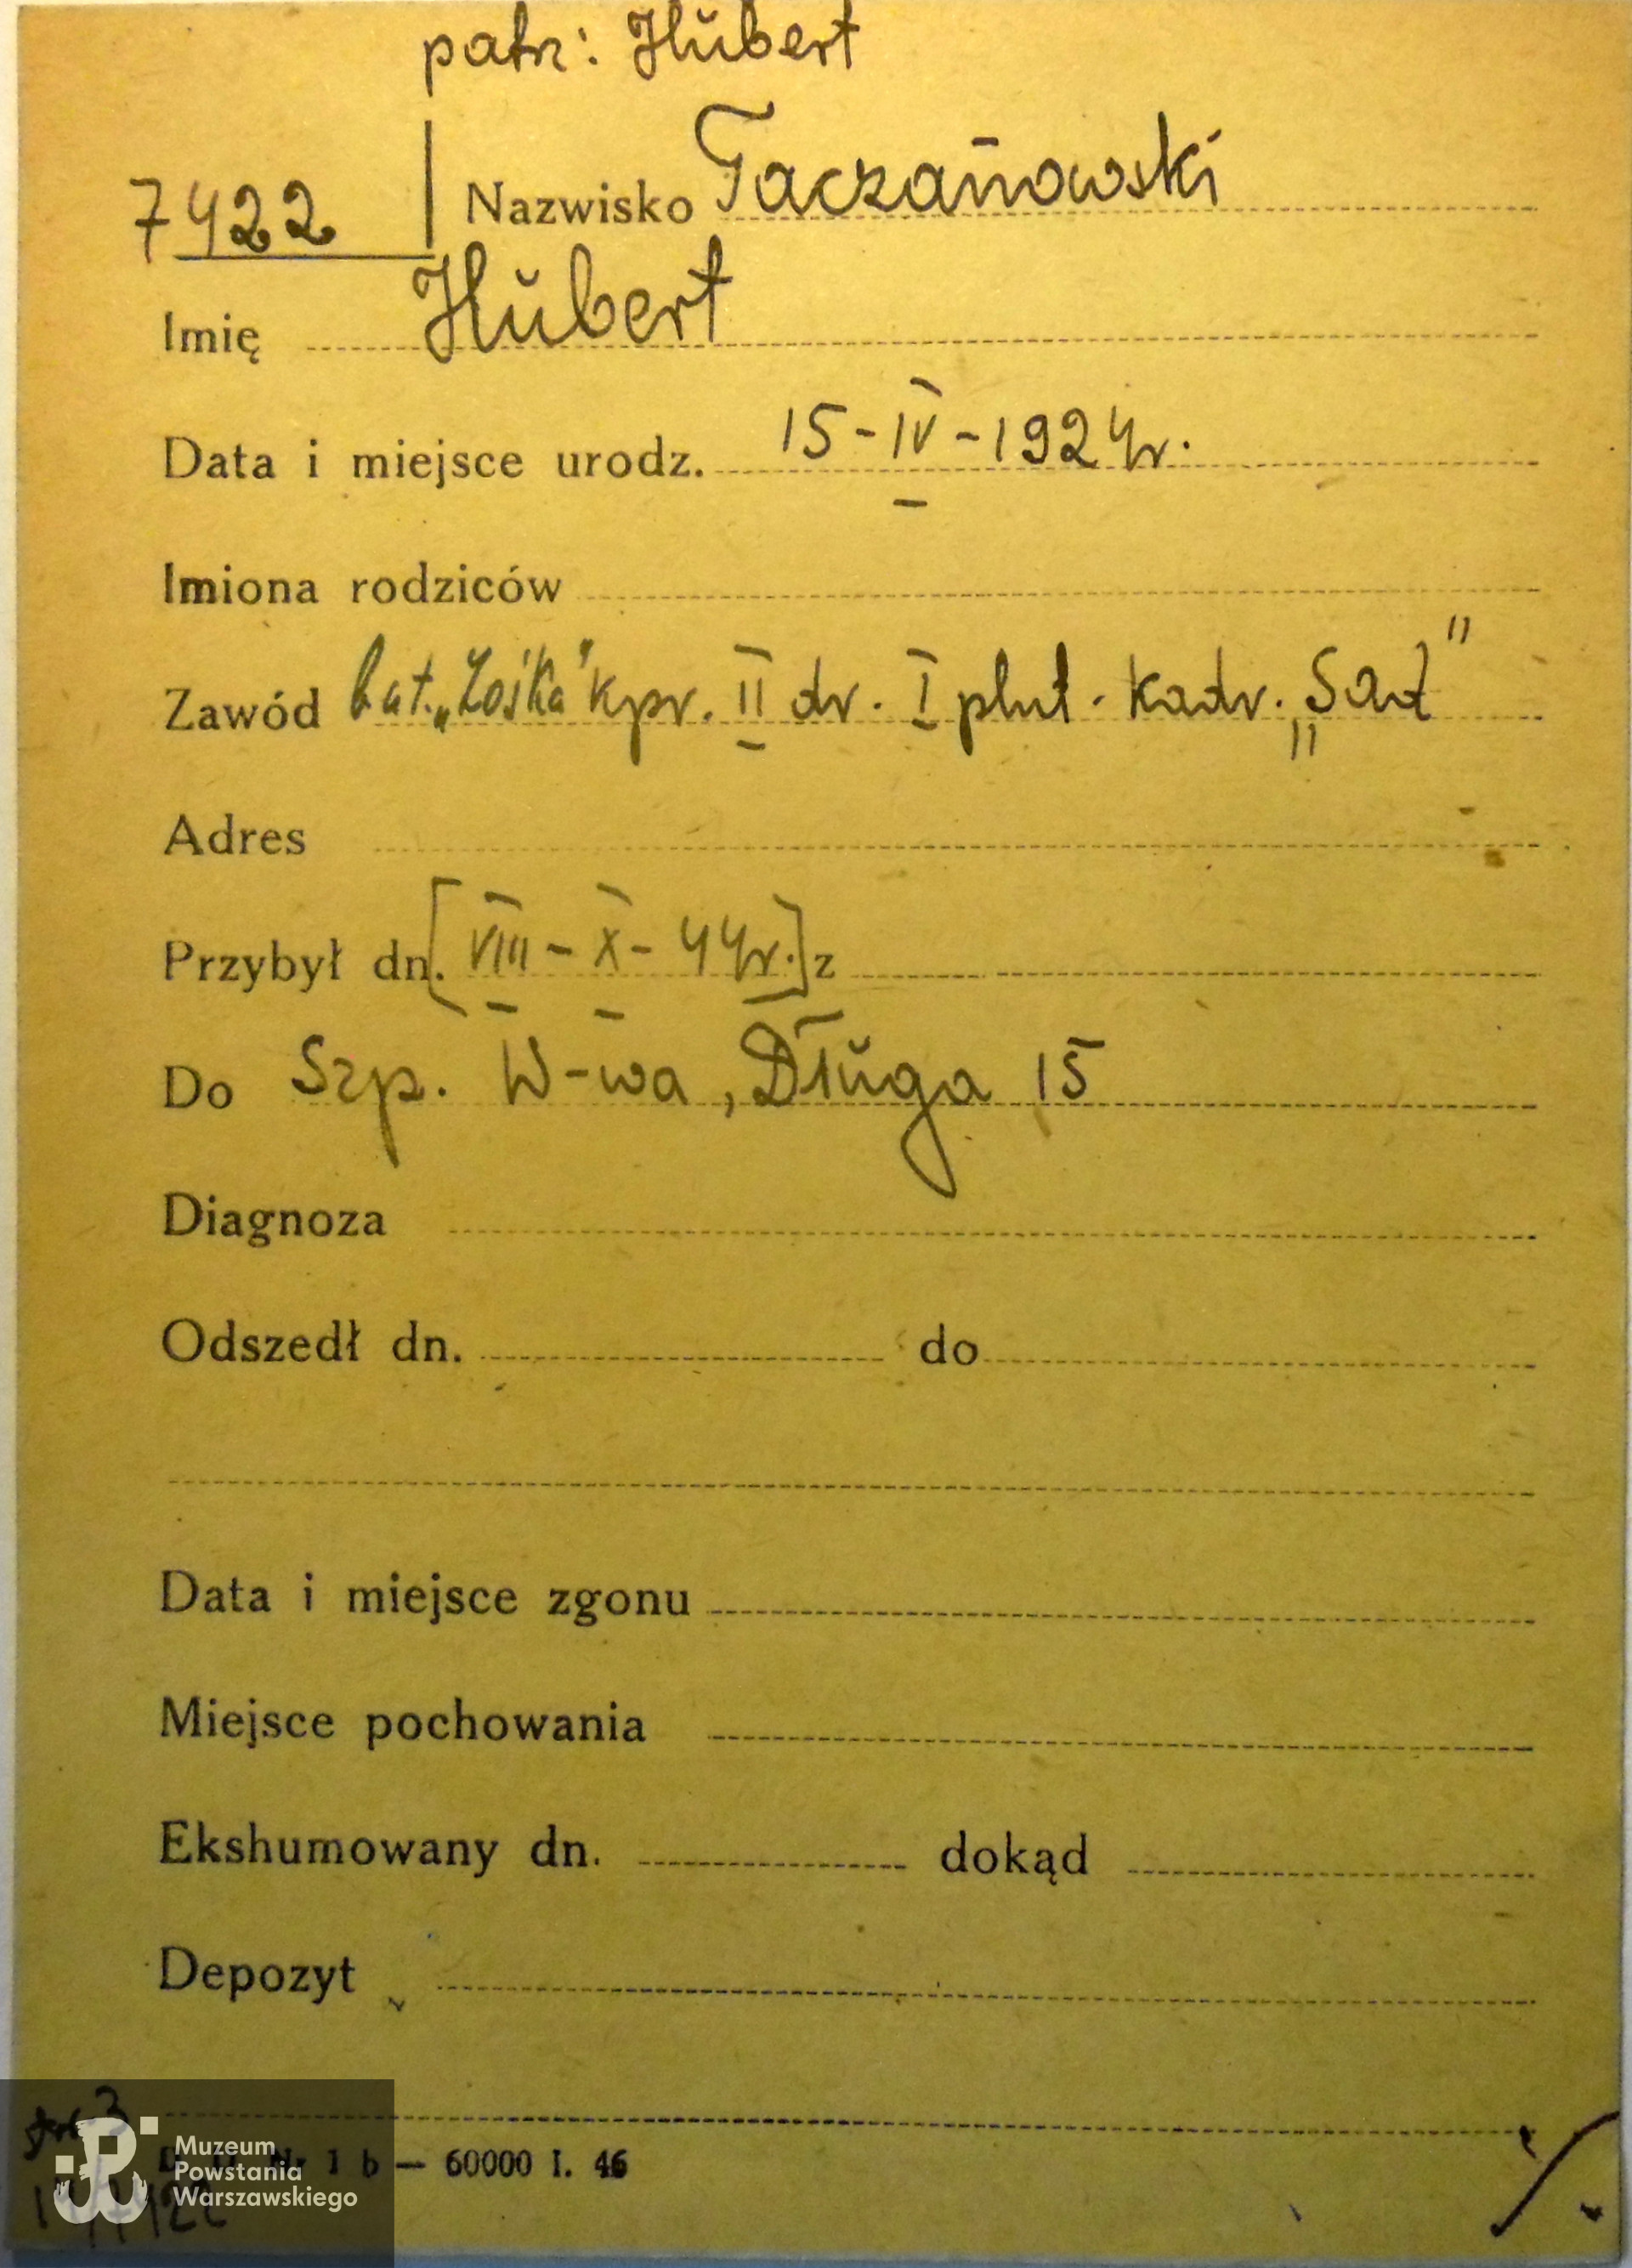 patrz: Hubert
7422 Nazwisko Taczanowski
Imię Hubert
Data i miejsce urodz. 15-IV-1924r.
Imiona rodziców
Zawód bat. „Zośka" kpr. II dr. I plut. kadr. „Sad"
Adres
Przybył dn. [VIII-X-44r.] z
Do Szp. W-wa, Długa 15
Diagnoza
Odszedł dn. do
Data i miejsce zgonu
Miejsce pochowania
Ekshumowany dn. dokąd
Depozyt
Muzeum
Powstania
Warszawskiego
1 b — 60000 I. 46